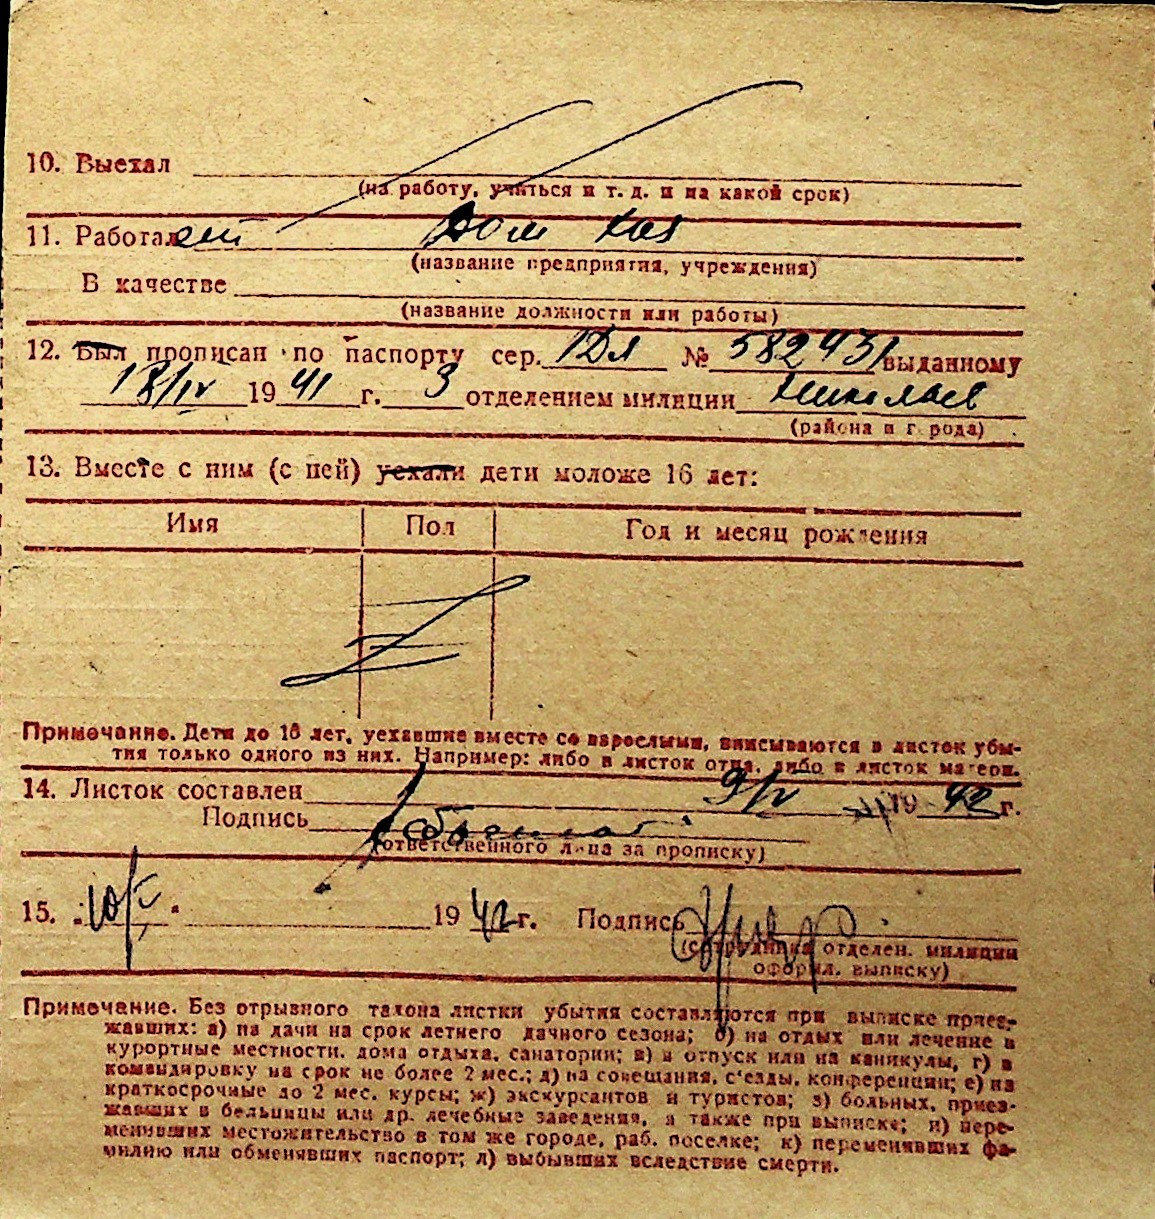 10. Выехал
(на работу, учиться и т. д. и на какой срок)
11. Работает Дом хоз
(название предприятия, учреждения)
В качестве
(название должности или работы)
12. Был прописан по паспорту сер. № 582431 выданному
18/IV 1941 г. 3 отделением милиции Николаев
(района и города)
13. Вместе с ним (с ней) уехали дети моложе 16 лет:
Имя Пол Год и месяц рождения
Примечание. Дети до 16 лет, уехавшие вместе со взрослыми, вписываются в листок убы-
тия только одного из них. Например: либо в листок отца, либо в листок матери.
14. Листок составлен 9/V 1942 г.
Подпись
(ответственного лица за прописку)
15. „10/V“ 1942 г. Подпись
(сотрудника отделен. милиции
оформл. выписку)
Примечание. Без отрывного талона листки убытия составляются при выписке приез-
жавших: а) на дачи на срок летнего дачного сезона; б) на отдых или лечение в
курортные местности, дома отдыха, санатории; в) в отпуск или на каникулы, г) в
командировку на срок не более 2 мес.; д) на совещания, с'езды, конференции; е) на
краткосрочные до 2 мес. курсы; ж) экскурсантов и туристов; з) больных, приез-
жавших в больницы или др. лечебные заведения, а также при выписке; и) пере-
менивших местожительство в том же городе, раб. поселке; к) переменивших фа-
милию или обменявших паспорт; л) выбывших вследствие смерти.